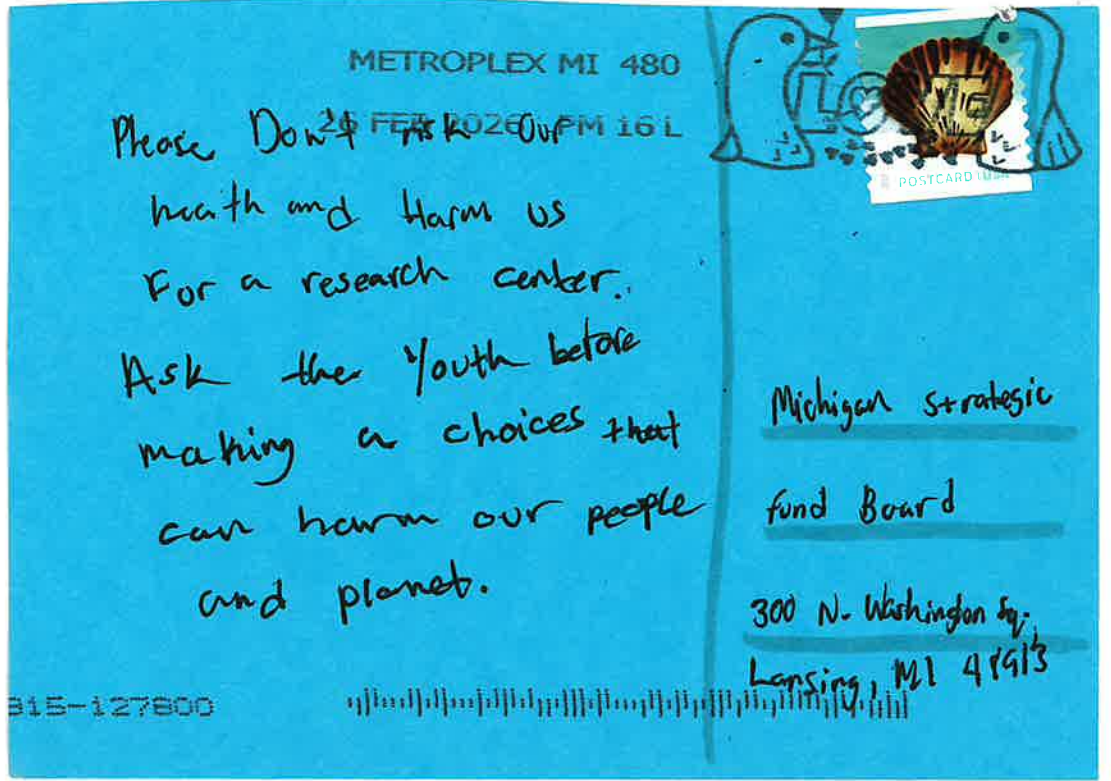 METROPLEX MI 480
26 FEB 2026 PM 16 L
Please Don't risk our
health and Harm us
For a research center.
Ask the Youth before
making a choices that
can harm our people
and planet.
POSTCARD USA
Michigan strategic
fund Board
300 N. Washington Sq.
Lansing, MI 48913
315-127800